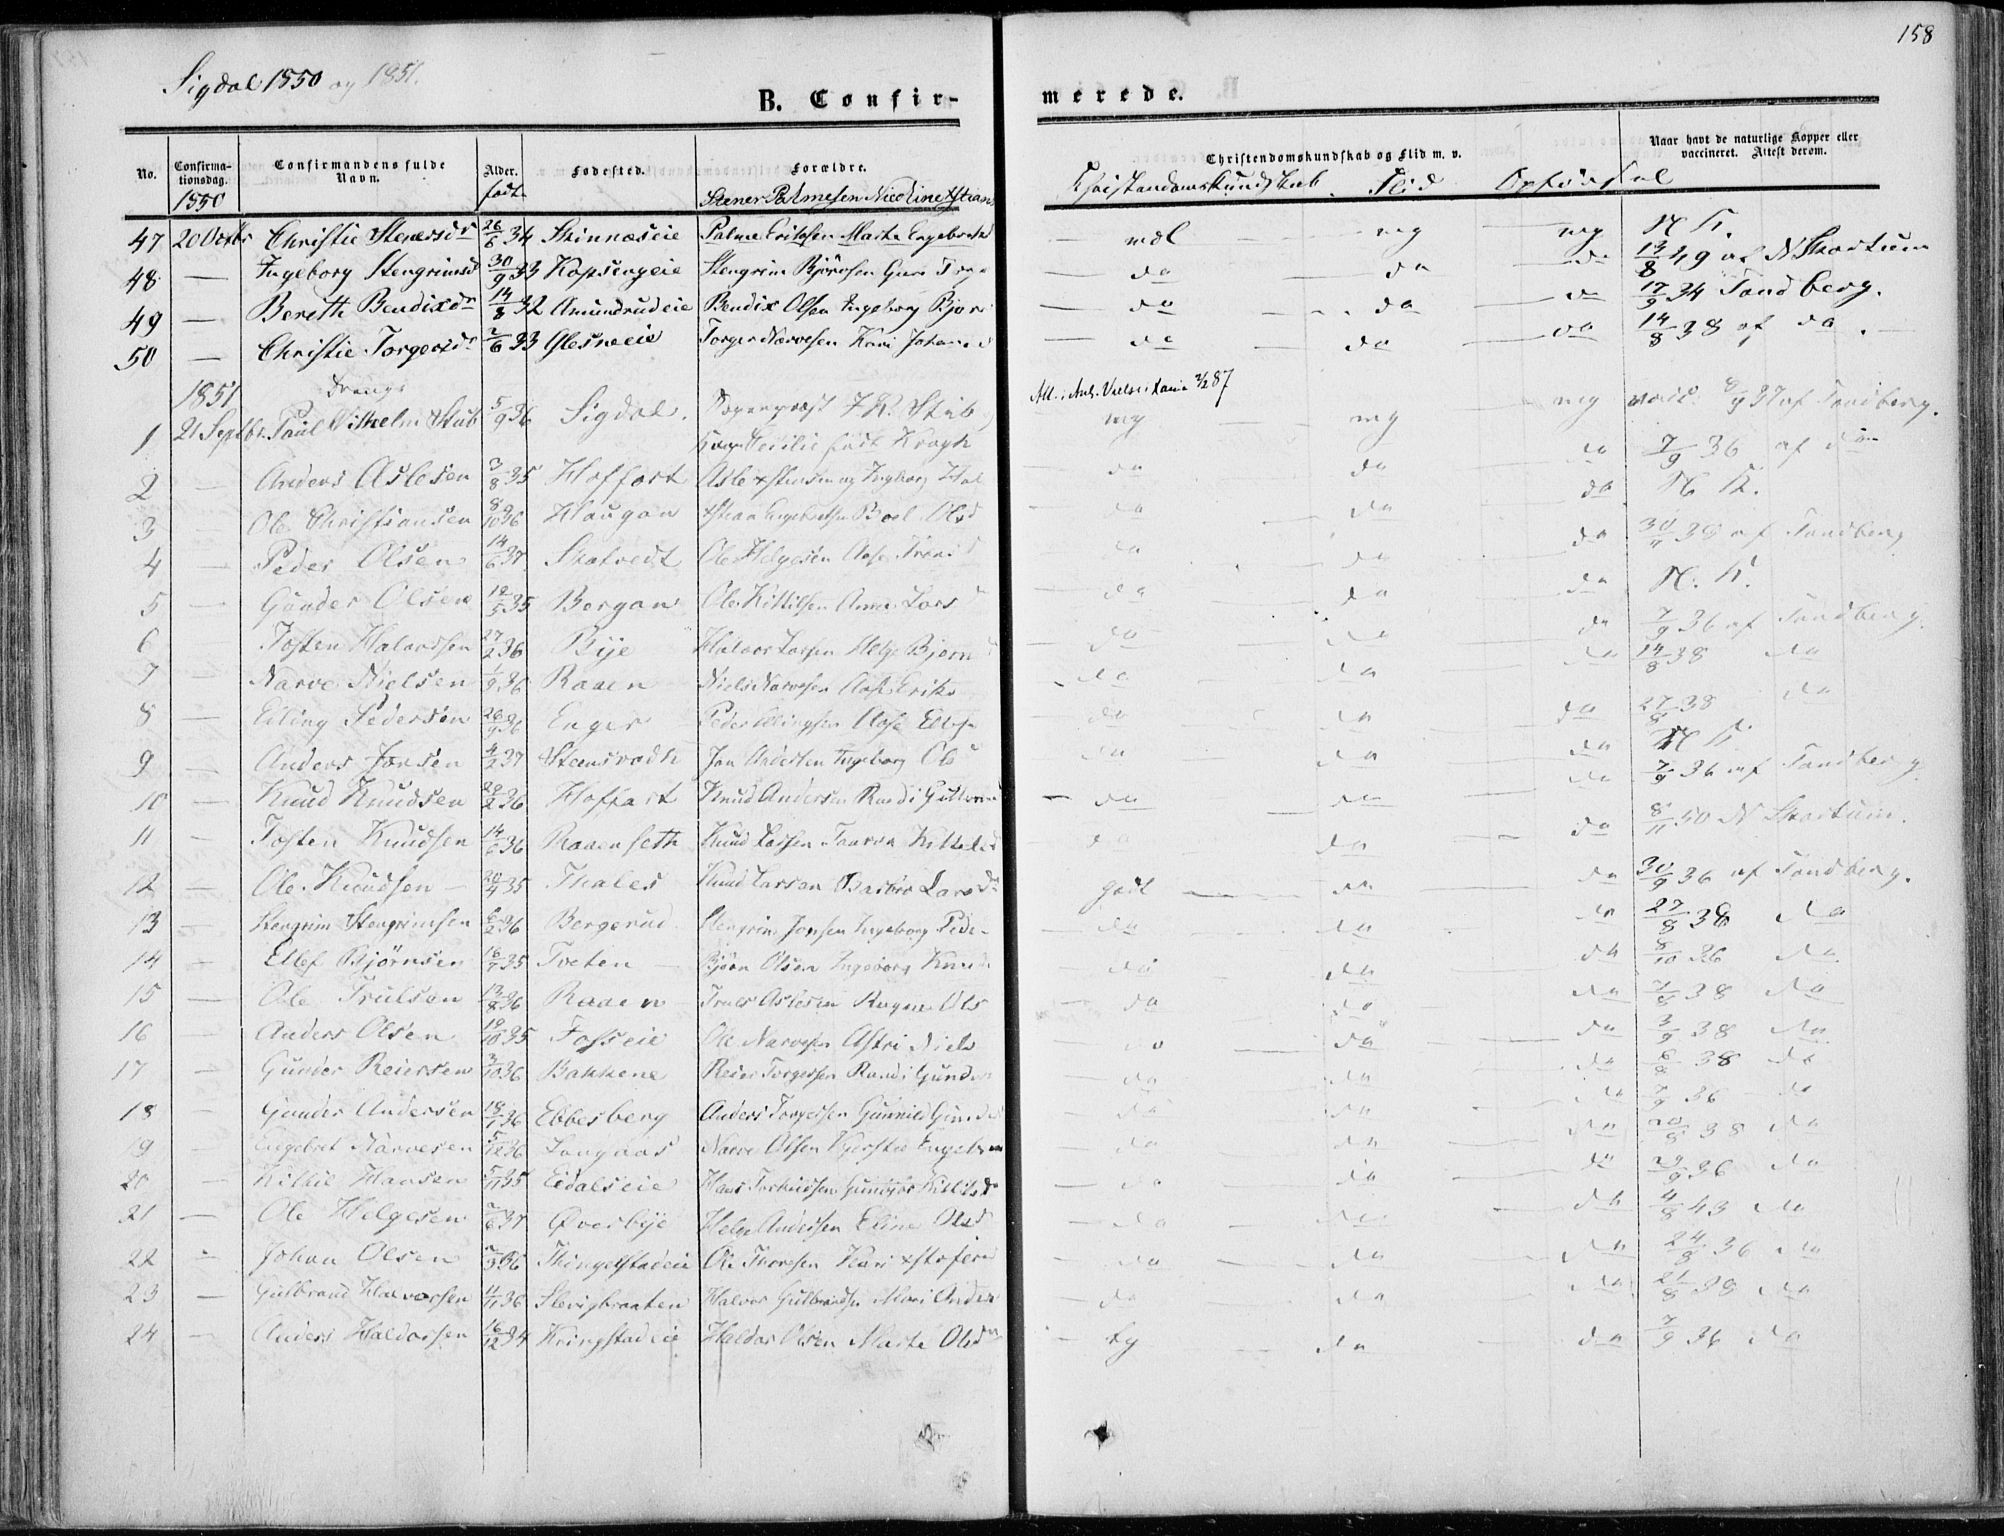 158
Sigdal 1850 og 1851.
B. Confirmerede.
No. Confirmationsdag. Confirmandens fulde Navn. Alder. Fødested. Forældre. Christendomskundskab og Flid m. v. Naar havt de naturlige Kopper eller vaccineret. Attest derom.
1850 født Stener Palmesen Christendomskundskab Flid Opførsel
47 20 Octbr Christie Stenersdr 26/6 34 Skinnæseie Palme Eriksen Marte Engebretsd mdl mg mg N. K.
48 — Ingeborg Stengrimsd 30/9 33 Kopsengeie Stengrim Bjørnsen Guri do do do 13/8 49 af N Skartum
49 — Bereth Bendixdr 14/8 32 Amundrudeie Bendix Olsen Ingeborg Bjør do do do 17/9 34 Tandberg.
50 — Christie Torgersdr 2/6 33 Glesneeie Torger Narvesen Kari Johannesd do do do 14/8 38 af do.
1851 Drenge
1 21 Septbr. Paul Vilhelm Stub 5/9 36 Sigdal. Sogneprest Stub mg mg mg vacc. 8/9 37 af Tandberg.
Cecilie født Krogh
2 — Anders Aslesen 3/8 35 Hoffart Asle Ingborg do do do 7/9 36 af do
3 — Ole Christiansen 8/10 36 Haugan Engebretsen Boel Olsd do do do N. K.
4 — Peder Olsen 14/6 37 Skatvedt Ole Helgesen Aase do do do 30/9 39 af Tandberg
5 — Gunder Olsen 19/5 35 Bergan Ole Kittilsen Anne Lars do do do N. K.
6 — Tosten Halvorsen 27/2 36 Bije Halvor Larsen Helge Bjørn do do do 7/9 36 af Tandberg.
7 — Narve Nielsen 1/9 36 Raaen Niels Narvesen Aase Eriks do do do 14/8 38 do
8 — Elling Pedersen 26/9 36 Enger Peder Ellingsen Aase do do do 27/8 38 do
9 — Anders Jonsen 4/2 37 Steensrodh Jon Andersen Ingeborg Ols do do do N. K.
10 — Knud Knudsen 29/2 36 Hoffart Knud Andersen Randi Gulbrand do do do 7/9 36 af Tandberg
11 — Tosten Knudsen 14/6 36 Raaenseth Knud Larsen Kittelsd do do do 8/11 50 N Skartum.
12 — Ole Knudsen 20/4 35 Thales Knud Larsen Barbro Larsdr godt do do 30/9 36 af Tandberg.
13 — Stengrim Stengrimsen 6/2 36 Bergerud Stengrim Jonsen Ingeborg Peder do do do 27/8 38 do
14 — Ellef Bjørnsen 16/9 35 Tveten Bjørn Olsen Ingeborg Knud do do do 8/10 36 do
15 — Ole Trulsen 13/8 36 Raaen Truls Aslesen Ragne Ols do do do 7/8 38 do
16 — Anders Olsen 19/10 35 Fosseie Ole Narvesen Astri Niels do do do 3/9 38 do
17 — Gunder Reiersen 3/10 36 Bakkene Reier Torgersen Randi Gunder do do do 6/8 38 do
18 — Gunder Andersen 18/1 36 Ebbesberg Anders Torgersen Gunnild Gunder do do do 7/9 36 do
19 — Engebret Narvesen 5/12 36 Langnas Narve Olsen Kjersti Engebret do do do 20/8 38 do
20 — Kittil Hansen 5/11 35 Eidalseie Hans Kittilsdr do do do 29/9 36 do
21 — Ole Helgesen 2/6 37 Øverbije Helge Andersen Eline Olsd do do do 4/8 43 do
22 — Johan Olsen Thingelstadeie Ole Thoresen Kari do do do 24/8 36 do
23 — Gulbrand Halvorsen 11/11 36 Slevigbraaten Halvor Gulbrandsen Mari Anders do do do 21/8 39 do
24 — Anders Haldorsen 16/12 34 Kringstadeie Haldor Olsen Marte Olsdr tg do do 7/9 36 do